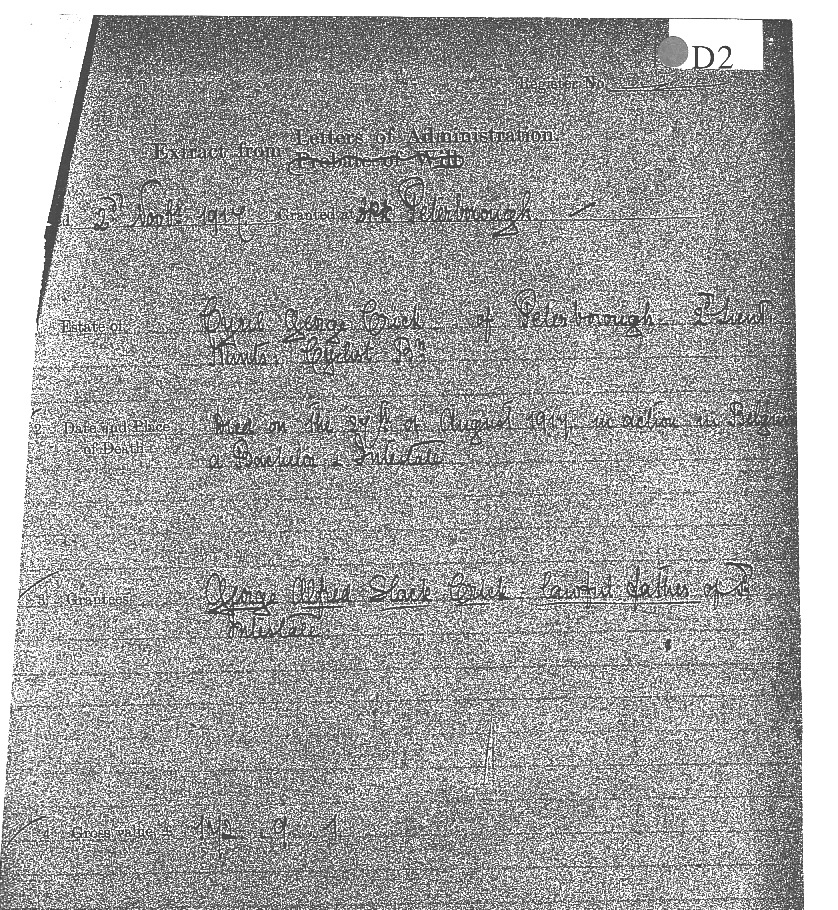 D2
Register No
Letters of Administration
Extract from Probate or Will
2nd Novbr 1917 Granted at Peterborough
Estate of Cyril George Crick of Peterborough 2nd Lieut
Hunts. Cyclist Bn
2. Date and Place Died on the 27th of August 1917 in action in Belgium
of Death a Bachelor & Intestate
3. Grantee George Alfred Slack Crick lawful father of
Intestate
4. Gross value £